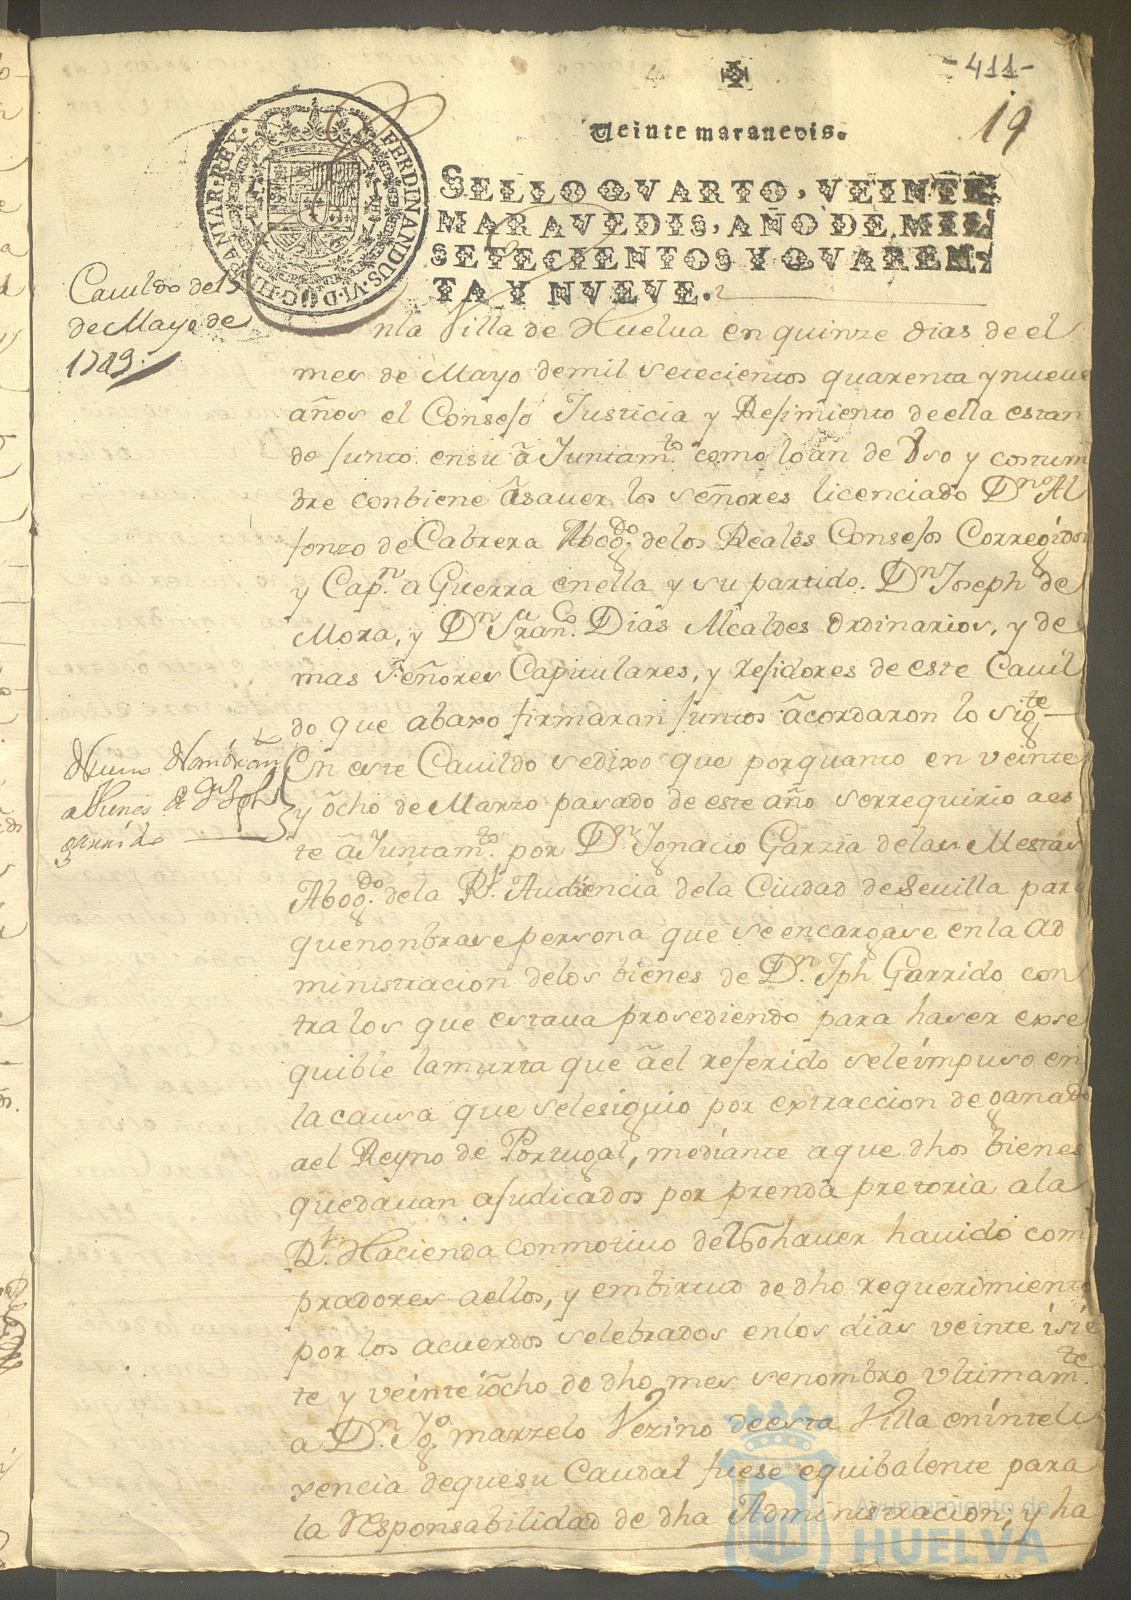 -411-
19
Veinte maravedis.
SELLO QVARTO, VEINTE
MARAVEDIS, AÑO DE MIL
SETECIENTOS Y QVAREN-
TA Y NVEVE.
FERDINANDUS·VI·D·G·HISPANIAR·REX·
Cavildo de 15
de Mayo de
1749
nla Villa de Huelua en quinze dias de el
mes de Mayo demil setecientos quarenta y nueue
años el Consejo Justicia y Rejimiento de ella estan
do junto ensu aJuntamto como loan de Vso y costum
bre conbiene asauer los señores licenciado Dn Al
fonzo de Cabrera Abogdo delos Reales Consejos Corregidor
y Capn a Guerra enella y su partido. Dn Joseph de
Mora, y Dn Franco Dias Alcaldes Ordinarios, y de
mas Señores Capitulares, y rejidores de este Cavil
do que abaxo firmaran juntos acordaron lo sigte
En este Cavildo sedixo que porquanto en veinte
y ocho de Marzo pasado de este año serrequirio aes
te aJuntamto por Dn Ignacio Garzia delas Mestas
Abogdo dela Rl Audiencia dela Ciudad de Sevilla para
quenonbrase persona que se encargase enla ad
ministracion delos bienes de Dn Jph Garrido con
tra los que estaua prosediendo para haser exse
quible lamurta que ael referido seleimpuso en
la causa que selesiguio por extraccion de ganado
ael Reyno de Portugal, mediante a que dhos bienes
quedauan ajudicados por prenda pretoria a la
Rl Hacienda conmotiuo de no hauer hauido com
pradores aellos, y embirtud de dho requerimiento
por los acuerdos selebrados enlos dias veinte isie
te y veinte iocho de dho mes senombro vltimamte
a Dn Igo marzelo Vezino deesta Villa eninteli
xencia dequesu Caudal fuese equibalente para
la responsabilidad de dha Administracion; y ha
Nuevo Nombram
a
Garrido
Ayuntamiento de
HUELVA